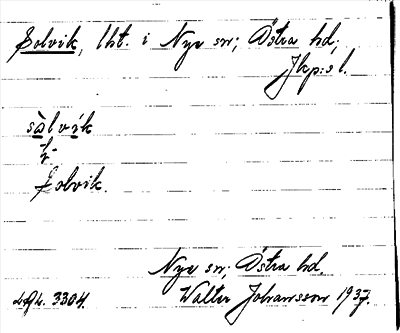 Solvik, lht. i Nye sn; Östra hd;
Jkp:s l.
sòlvik
Solvik.
Nye sn; Östra hd.
Walter Johansson 1937.